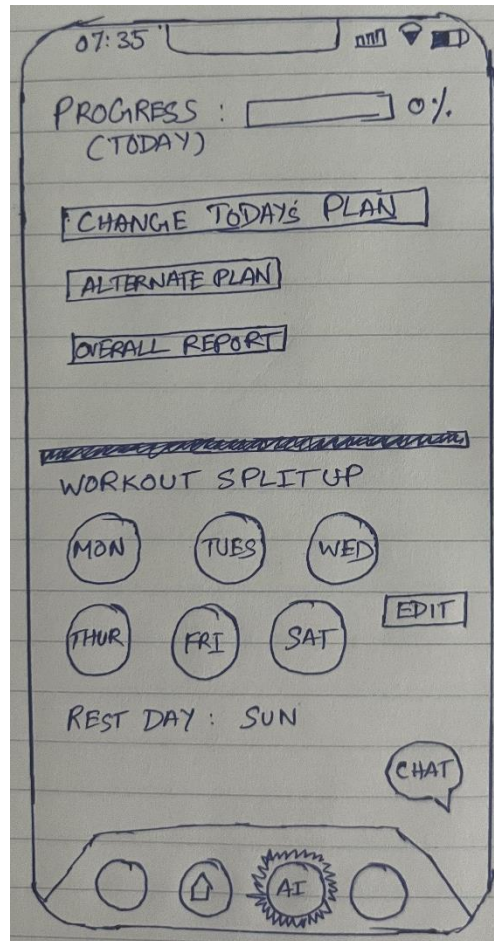 07:35
PROGRESS : 0%
(TODAY)
CHANGE TODAY'S PLAN
ALTERNATE PLAN
OVERALL REPORT
WORKOUT SPLITUP
MON TUES WED
THUR FRI SAT
EDIT
REST DAY : SUN
CHAT
AI